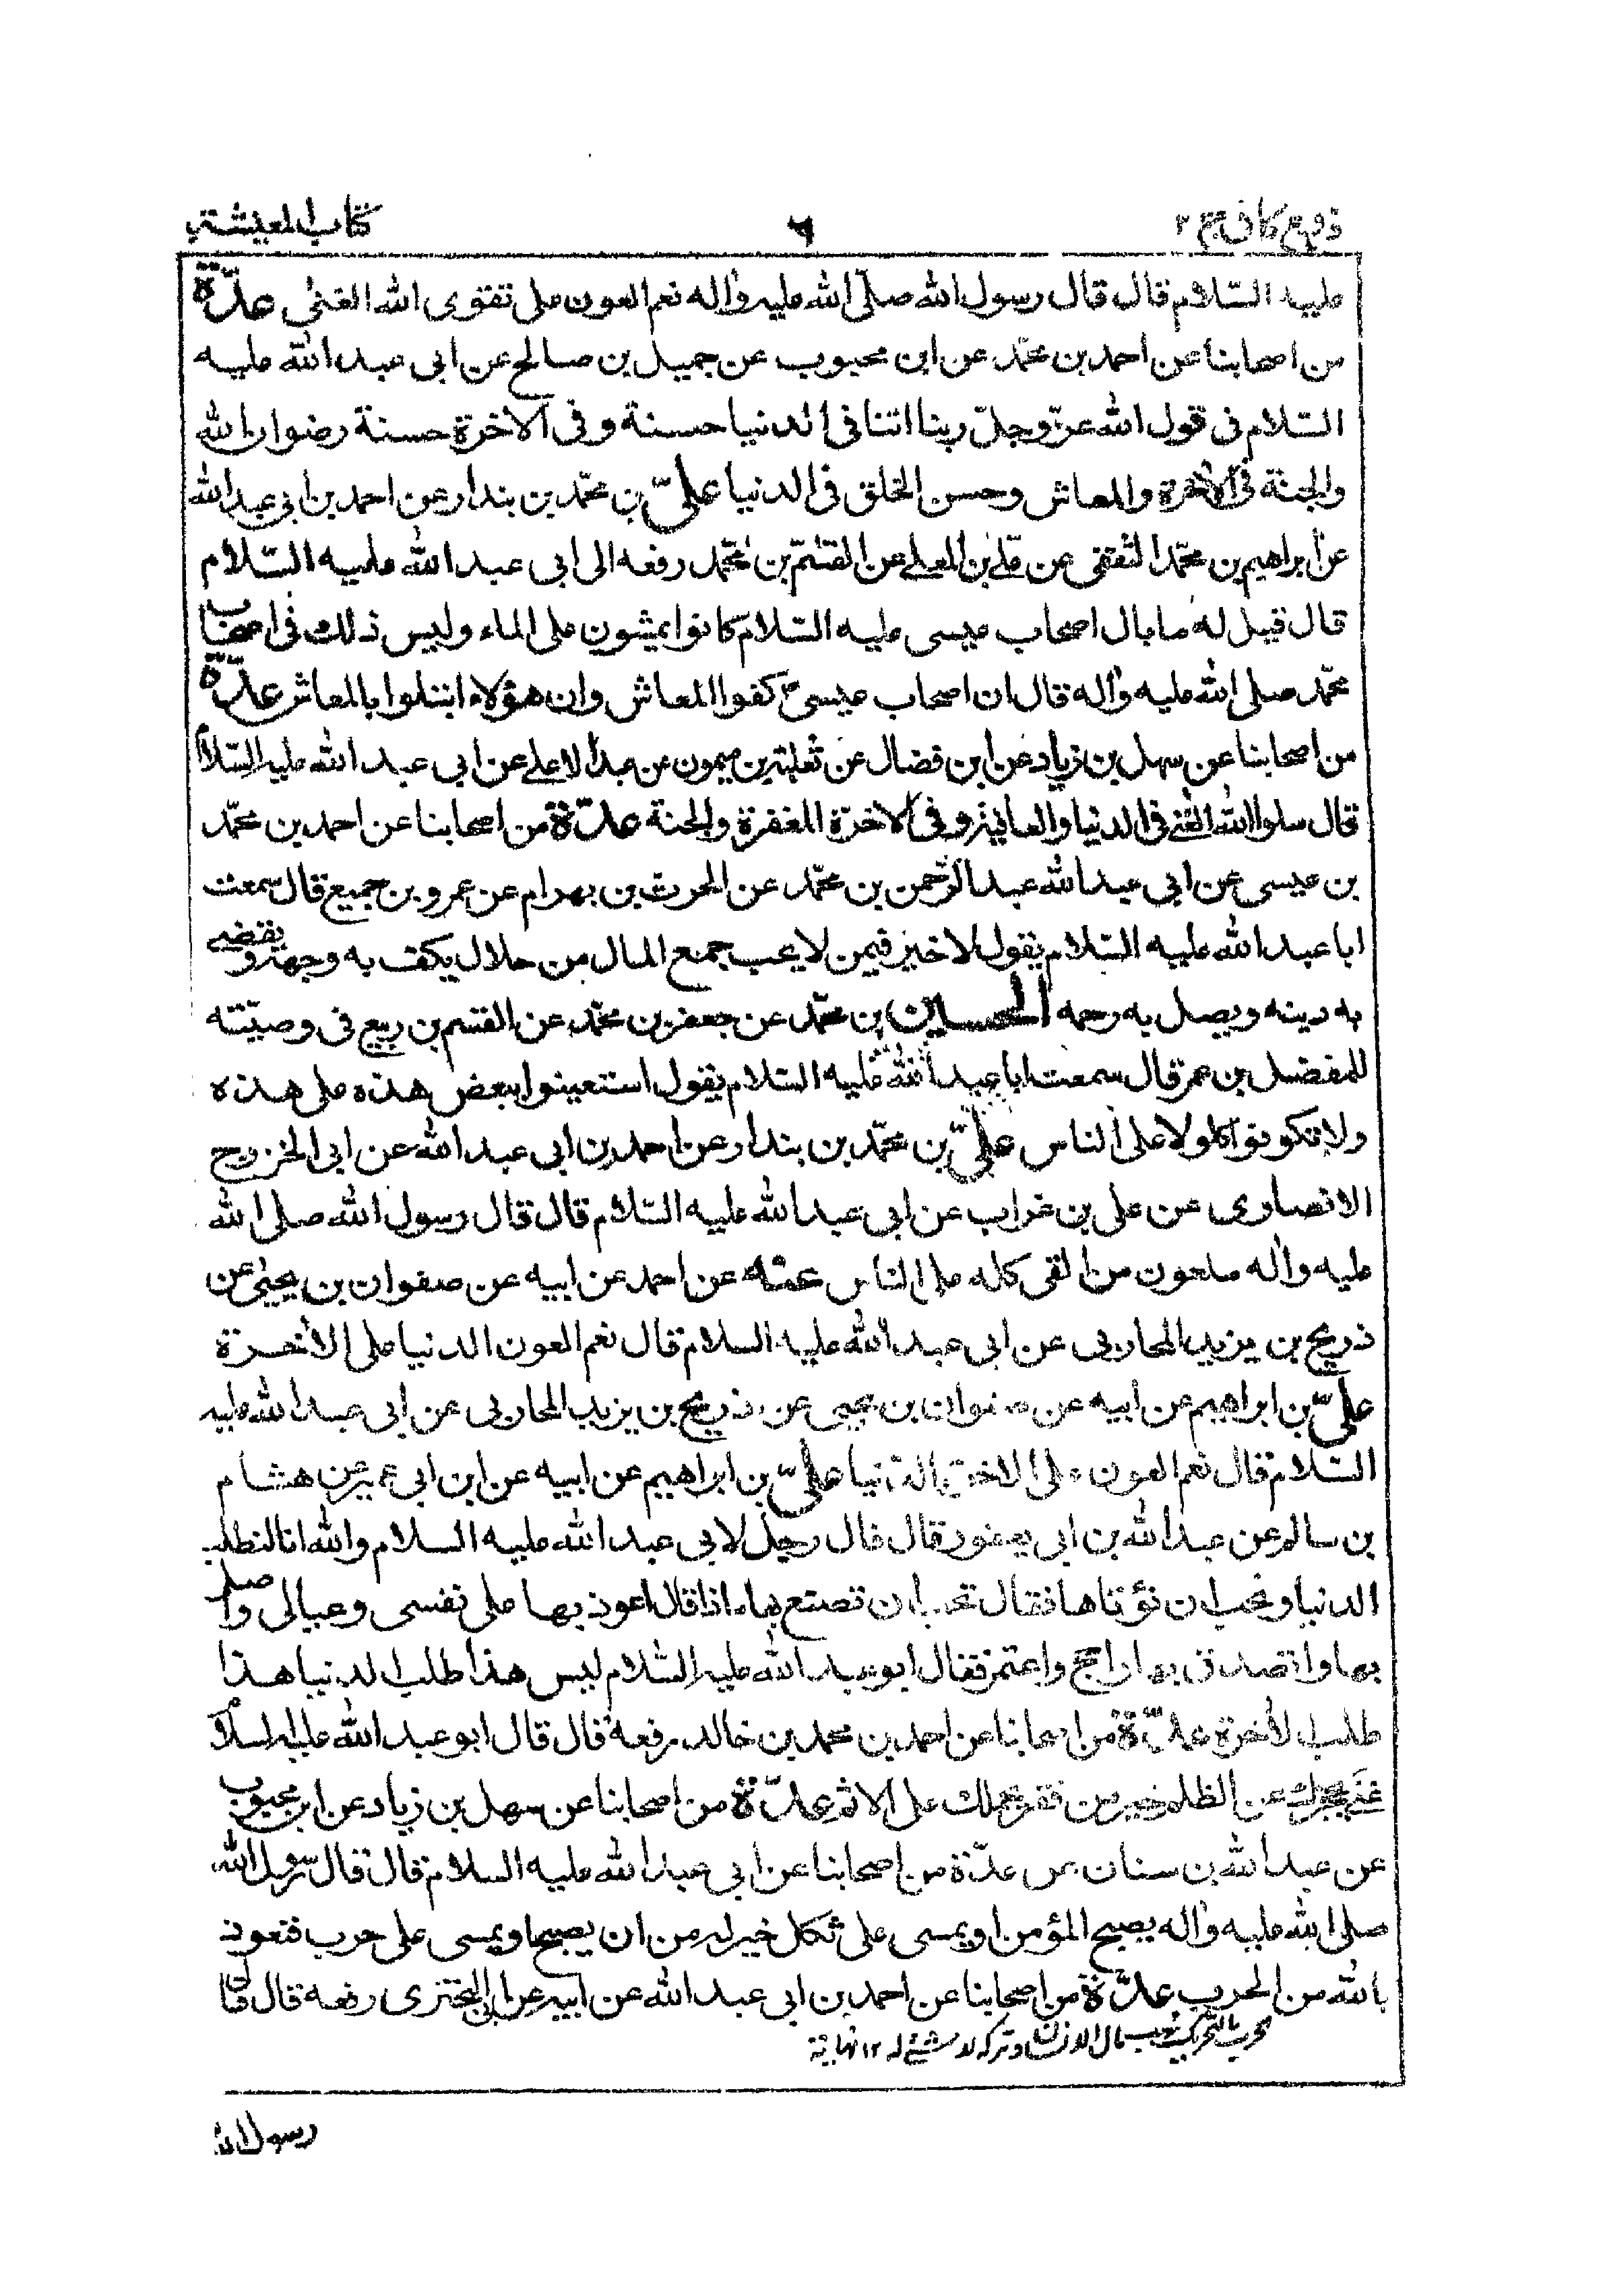 فروع كافى ج ٢
٦
كتاب المعيشة
عليه السّلام قال قال رسول الله صلّى الله عليه واله نعم العون على تقوى الله الغنى عدّة
من اصحابنا عن احمد بن محمّد عن ابن محبوب عن جميل بن صالح عن ابى عبد الله عليه
السّلام فى قول الله عزّ وجلّ ربنا اتنا فى الدنيا حسنة وفى الاخرة حسنة رضوان الله
والجنة فى الاخرة والمعاش وحسن الخلق فى الدنيا علىّ بن محمّد بن بندار عن احمد بن ابى عبد الله
عن ابراهيم بن محمّد الثقفى عن على بن المعلى عن القسم بن محمّد رفعه الى ابى عبد الله عليه السّلام
قال قيل له ما بال اصحاب عيسى عليه السّلام كانوا يمشون على الماء وليس ذلك فى اصحاب
محمّد صلى الله عليه واله قال ان اصحاب عيسىٰ كفوا المعاش وان هؤلاء ابتلوا بالمعاش عدّة
من اصحابنا عن سهل بن زياد عن ابن فضال عن ثعلبة بن ميمون عن عبد الاعلى عن ابى عبد الله عليه السّلام
قال سلوا الله الغنى فى الدنيا والعافية وفى الاخرة المغفرة والجنة عدّة من اصحابنا عن احمد بن محمّد
بن عيسى عن ابى عبد الله عبد الرّحمن بن محمّد عن الحرث بن بهرام عن عمرو بن جميع قال سمعت
ابا عبد الله عليه السّلام يقول لا خير فيمن لا يحب جمع المال من حلال يكف به وجهه ويقضى
به دينه ويصل به رحمه الحسين بن محمّد عن جعفر بن محمّد عن القسم بن ربيع فى وصيّته
للمفضل بن عمر قال سمعت ابا عبد الله عليه السّلام يقول استعينوا ببعض هذه على هذه
ولا تكونوا كلولا على الناس علىّ بن محمّد بن بندار عن احمد بن ابى عبد الله عن ابى الخزرج
الانصارى عن على بن غراب عن ابى عبد الله عليه السّلام قال قال رسول الله صلى الله
عليه واله ملعون من القى كله على الناس عنه عن احمد عن ابيه عن صفوان بن يحيى عن
ذريح بن يزيد المحاربى عن ابى عبد الله عليه السلام قال نعم العون الدنيا على الاخرة
علىّ بن ابراهيم عن ابيه عن صفوان بن يحيى عن ذريح بن يزيد المحاربى عن ابى عبد الله عليه
السّلام قال نعم العون على الاخرة الدنيا علىّ بن ابراهيم عن ابيه عن ابن ابى عمير عن هشام
بن سالم عن عبد الله بن ابى يعفور قال قال رجل لابى عبد الله عليه السلام والله انا لنطلب
الدنيا ونحب ان نؤتاها فقال تحب ان تصنع بها ماذا قال اعود بها على نفسى وعيالى واصل
بها واتصدق بها واحج واعتمر فقال ابو عبد الله عليه السّلام ليس هذا طلب الدنيا هذا
طلب الاخرة عدّة من اصحابنا عن احمد بن محمد بن خالد رفعه قال قال ابو عبد الله عليه السلام
غنى يحجزك عن الظلم خير من فقر يحملك على الاثم عدّة من اصحابنا عن سهل بن زياد عن ابن محبوب
عن عبد الله بن سنان عن عدّة من اصحابنا عن ابى عبد الله عليه السلام قال قال رسول الله
صلى الله عليه واله يصبح المؤمن او يمسى على ثكل خير له من ان يصبح او يمسى على حرب فنعوذ
بالله من الحرب عدّة من اصحابنا عن احمد بن ابى عبد الله عن ابيه عن ابى البخترى رفعه قال قال
حرب بالتحريك نهب مال الانسان وتركه لا شئ له ١٢ نهاية
رسول الله